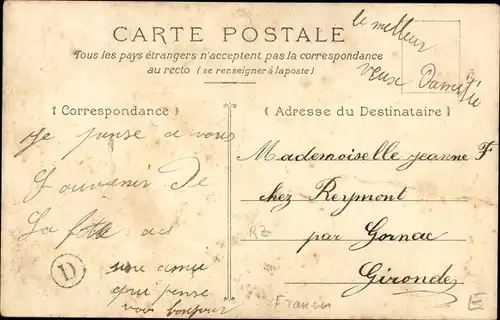 CARTE POSTALE
Tous les pays étrangers n'acceptent pas la correspondance
au recto (se renseigner à la poste)
le meilleur
( Correspondance )
Je pense a vous
Souvenir De
La
une amie
qui pense
vous bonjour
D
( Adresse du Destinataire )
Mademoiselle jeanne F
chez Reymont
par Gornac
Gironde
RZ
E